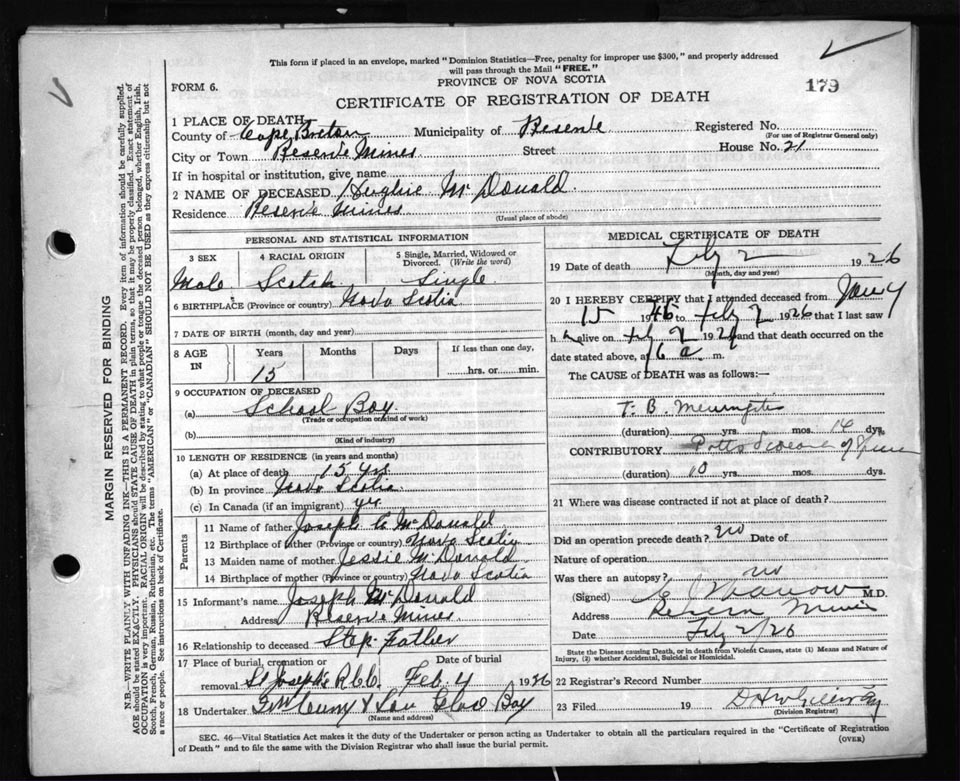 This form if placed in an envelope, marked "Dominion Statistics—Free, penalty for improper use $300," and properly addressed
will pass through the Mail "FREE."
FORM 6.
PROVINCE OF NOVA SCOTIA
179
CERTIFICATE OF REGISTRATION OF DEATH
1 PLACE OF DEATH
County of Cape Breton Municipality of Reserve Registered No.
(For use of Registrar General only)
City or Town Reserve Mines Street House No. 21
If in hospital or institution, give name
2 NAME OF DECEASED Hughie McDonald
Residence Reserve Mines
(Usual place of abode)
PERSONAL AND STATISTICAL INFORMATION
3 SEX 4 RACIAL ORIGIN 5 Single, Married, Widowed or Divorced. (Write the word)
Male Scotch Single
6 BIRTHPLACE (Province or country) Nova Scotia
7 DATE OF BIRTH (month, day and year)
8 AGE IN Years Months Days If less than one day,
15 hrs. or min.
9 OCCUPATION OF DECEASED
(a) School Boy
(Trade or occupation or kind of work)
(b)
(Kind of industry)
10 LENGTH OF RESIDENCE (in years and months)
(a) At place of death 15 yrs
(b) In province Nova Scotia
(c) In Canada (if an immigrant) yes
Parents
11 Name of father Joseph McDonald
12 Birthplace of father (Province or country) Nova Scotia
13 Maiden name of mother Jessie McDonald
14 Birthplace of mother (Province or country) Nova Scotia
15 Informant's name Joseph McDonald
Address Reserve Mines
16 Relationship to deceased Step-Father
17 Place of burial, cremation or Date of burial
removal St Joseph's Feb. 4 1926
18 Undertaker Glace Bay
(Name and address)
MEDICAL CERTIFICATE OF DEATH
19 Date of death Feby 2 1926
(Month, day and year)
20 I HEREBY CERTIFY that I attended deceased from Jany
15 19 to Feby 2 1926 that I last saw
h alive on Feby 2 19 and that death occurred on the
date stated above, at 6 a m.
The CAUSE of DEATH was as follows:—
T. B. Meningitis
(duration) yrs. mos. 14 dys.
CONTRIBUTORY Potts Disease of Spine
(duration) 10 yrs. mos. dys.
21 Where was disease contracted if not at place of death?
Did an operation precede death? no Date of
Nature of operation
Was there an autopsy? no
(Signed) M.D.
Address Reserve Mines
Date Feby 2/26
State the Disease causing Death, or in death from Violent Causes, state (1) Means and Nature of
Injury, (2) whether Accidental, Suicidal or Homicidal.
22 Registrar's Record Number
23 Filed 19
(Division Registrar)
SEC. 46—Vital Statistics Act makes it the duty of the Undertaker or person acting as Undertaker to obtain all the particulars required in the "Certificate of Registration
of Death" and to file the same with the Division Registrar who shall issue the burial permit.
(OVER)
MARGIN RESERVED FOR BINDING
N.B.—WRITE PLAINLY WITH UNFADING INK—THIS IS A PERMANENT RECORD. Every item of information should be carefully supplied.
AGE should be stated EXACTLY. PHYSICIANS should STATE CAUSE OF DEATH in plain terms, so that it may be properly classified. Exact statement of
OCCUPATION is very important. RACIAL ORIGIN will be described by stating to what people or tongue the deceased person belonged, whether English, Irish,
Scotch, French, German, Russian, Ruthenian, etc. The terms "AMERICAN" or "CANADIAN" SHOULD NOT BE USED as they express citizenship but not
a race or people. See instructions on back of Certificate.